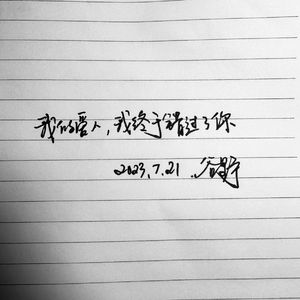 我的爱人,我终于错过了你
2023.7.21.